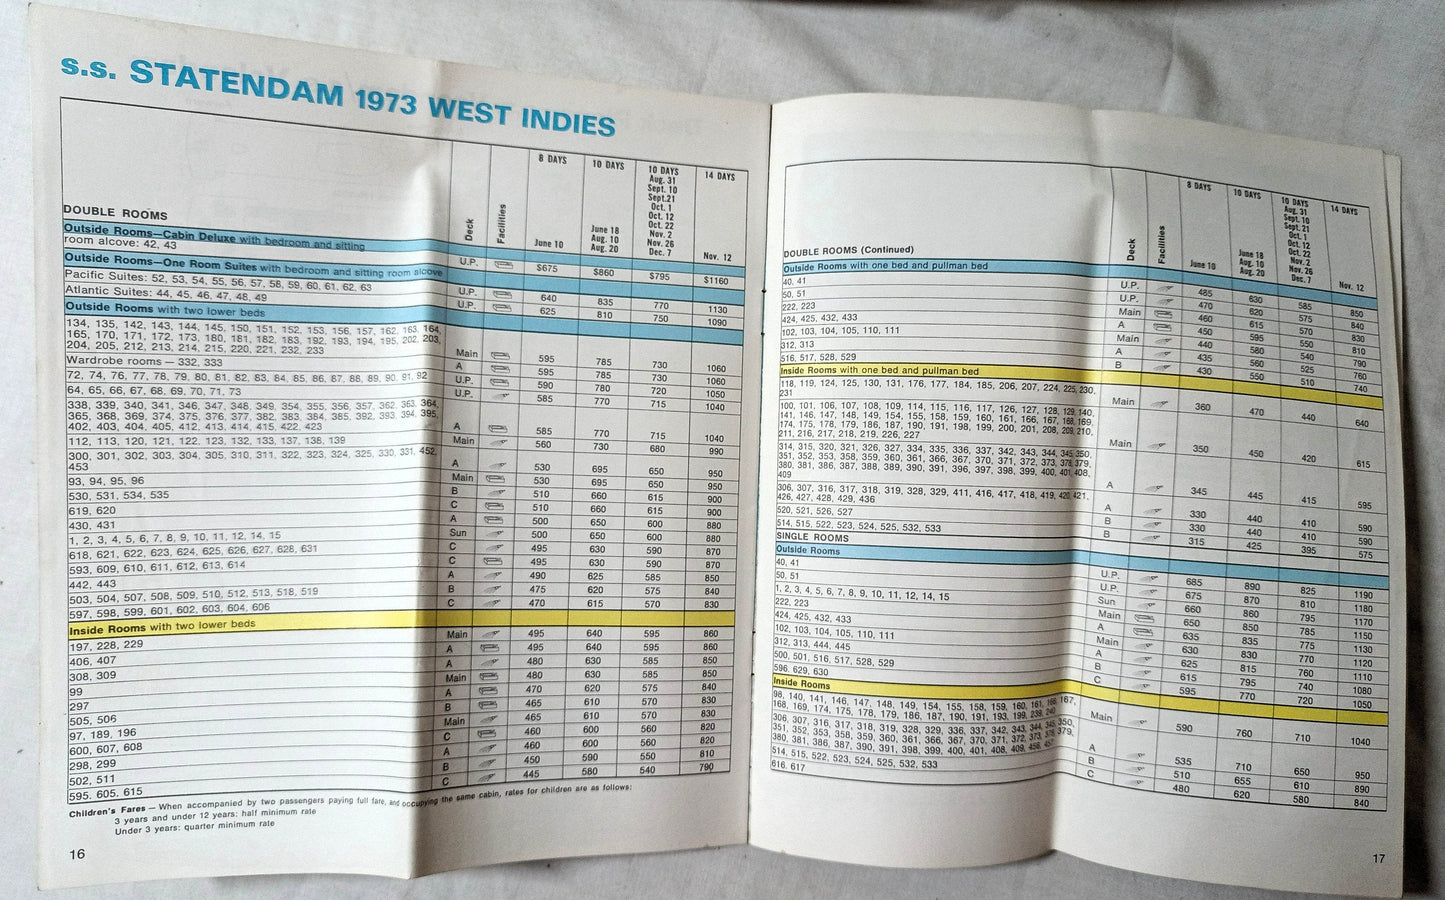 s.s. STATENDAM 1973 WEST INDIES
DOUBLE ROOMS Deck Facilities
8 DAYS June 10
10 DAYS June 18 Aug. 10 Aug. 20
10 DAYS Aug. 31 Sept. 10 Sept.21 Oct. 1 Oct. 12 Oct. 22 Nov. 2 Nov. 26 Dec. 7
14 DAYS Nov. 12
Outside Rooms—Cabin Deluxe with bedroom and sitting
room alcove: 42, 43 U.P. $675 $860 $795 $1160
Outside Rooms—One Room Suites with bedroom and sitting room alcove
Pacific Suites: 52, 53, 54, 55, 56, 57, 58, 59, 60, 61, 62, 63 U.P. 640 835 770 1130
Atlantic Suites: 44, 45, 46, 47, 48, 49 U.P. 625 810 750 1090
Outside Rooms with two lower beds
134, 135, 142, 143, 144, 145, 150, 151, 152, 153, 156, 157, 162, 163, 164,
165, 170, 171, 172, 173, 180, 181, 182, 183, 192, 193, 194, 195, 202, 203,
204, 205, 212, 213, 214, 215, 220, 221, 232, 233 Main 595 785 730 1060
Wardrobe rooms — 332, 333 A 595 785 730 1060
72, 74, 76, 77, 78, 79, 80, 81, 82, 83, 84, 85, 86, 87, 88, 89, 90, 91, 92 U.P. 590 780 720 1050
64, 65, 66, 67, 68, 69, 70, 71, 73 U.P. 585 770 715 1040
338, 339, 340, 341, 346, 347, 348, 349, 354, 355, 356, 357, 362, 363, 364,
365, 368, 369, 374, 375, 376, 377, 382, 383, 384, 385, 392, 393, 394, 395,
402, 403, 404, 405, 412, 413, 414, 415, 422, 423 A 585 770 715 1040
112, 113, 120, 121, 122, 123, 132, 133, 137, 138, 139 Main 560 730 680 990
300, 301, 302, 303, 304, 305, 310, 311, 322, 323, 324, 325, 330, 331, 452,
453 A 530 695 650 950
93, 94, 95, 96 Main 530 695 650 950
530, 531, 534, 535 B 510 660 615 900
619, 620 C 510 660 615 900
430, 431 A 500 650 600 880
1, 2, 3, 4, 5, 6, 7, 8, 9, 10, 11, 12, 14, 15 Sun 500 650 600 880
618, 621, 622, 623, 624, 625, 626, 627, 628, 631 C 495 630 590 870
593, 609, 610, 611, 612, 613, 614 C 495 630 590 870
442, 443 A 490 625 585 850
503, 504, 507, 508, 509, 510, 512, 513, 518, 519 B 475 620 575 840
597, 598, 599, 601, 602, 603, 604, 606 C 470 615 570 830
Inside Rooms with two lower beds
197, 228, 229 Main 495 640 595 860
406, 407 A 495 640 595 860
308, 309 A 480 630 585 850
99 Main 480 630 585 850
297 A 470 620 575 840
505, 506 B 465 610 570 830
97, 189, 196 Main 465 610 570 830
600, 607, 608 C 460 600 560 820
298, 299 A 460 600 560 820
502, 511 B 450 590 550 810
595, 605, 615 C 445 580 540 790
Children's Fares — When accompanied by two passengers paying full fare, and occupying the same cabin, rates for children are as follows:
3 years and under 12 years: half minimum rate
Under 3 years: quarter minimum rate
16
DOUBLE ROOMS (Continued) Deck Facilities
8 DAYS June 10
10 DAYS June 18 Aug. 10 Aug. 20
10 DAYS Aug. 31 Sept. 10 Sept. 21 Oct. 1 Oct. 12 Oct. 22 Nov. 2 Nov. 26 Dec. 7
14 DAYS Nov. 12
Outside Rooms with one bed and pullman bed
40, 41 U.P. 485 630 585 850
50, 51 U.P. 470 620 575 840
222, 223 Main 460 615 570 830
424, 425, 432, 433 A 450 595 550 810
102, 103, 104, 105, 110, 111 Main 440 580 540 790
312, 313 A 435 560 525 760
516, 517, 528, 529 B 430 550 510 740
Inside Rooms with one bed and pullman bed
118, 119, 124, 125, 130, 131, 176, 177, 184, 185, 206, 207, 224, 225, 230,
231 Main 360 470 440 640
100, 101, 106, 107, 108, 109, 114, 115, 116, 117, 126, 127, 128, 129, 140,
141, 146, 147, 148, 149, 154, 155, 158, 159, 160, 161, 166, 167, 168, 169,
174, 175, 178, 179, 186, 187, 190, 191, 198, 199, 200, 201, 208, 209, 210,
211, 216, 217, 218, 219, 226, 227 Main 350 450 420 615
314, 315, 320, 321, 326, 327, 334, 335, 336, 337, 342, 343, 344, 345, 350,
351, 352, 353, 358, 359, 360, 361, 366, 367, 370, 371, 372, 373, 378, 379,
380, 381, 386, 387, 388, 389, 390, 391, 396, 397, 398, 399, 400, 401, 408,
409 A 345 445 415 595
306, 307, 316, 317, 318, 319, 328, 329, 411, 416, 417, 418, 419, 420, 421,
426, 427, 428, 429, 436 A 330 440 410 590
520, 521, 526, 527 B 330 440 410 590
514, 515, 522, 523, 524, 525, 532, 533 B 315 425 395 575
SINGLE ROOMS
Outside Rooms
40, 41 U.P. 685 890 825 1190
50, 51 U.P. 675 870 810 1180
1, 2, 3, 4, 5, 6, 7, 8, 9, 10, 11, 12, 14, 15 Sun 660 860 795 1170
222, 223 Main 650 850 785 1150
424, 425, 432, 433 A 635 835 775 1130
102, 103, 104, 105, 110, 111 Main 630 830 770 1120
312, 313, 444, 445 A 625 815 760 1110
500, 501, 516, 517, 528, 529 B 615 795 740 1080
596, 629, 630 C 595 770 720 1050
Inside Rooms
98, 140, 141, 146, 147, 148, 149, 154, 155, 158, 159, 160, 161, 166, 167,
168, 169, 174, 175, 178, 179, 186, 187, 190, 191, 193, 199, 239, 240 Main 590 760 710 1040
306, 307, 316, 317, 318, 319, 328, 329, 336, 337, 342, 343, 344, 345, 350,
351, 352, 353, 358, 359, 360, 361, 366, 367, 370, 371, 372, 373, 378, 379,
380, 381, 386, 387, 390, 391, 398, 399, 400, 401, 408, 409, A 535 710 650 950
514, 515, 522, 523, 524, 525, 532, 533 B 510 655 610 890
616, 617 C 480 620 580 840
17